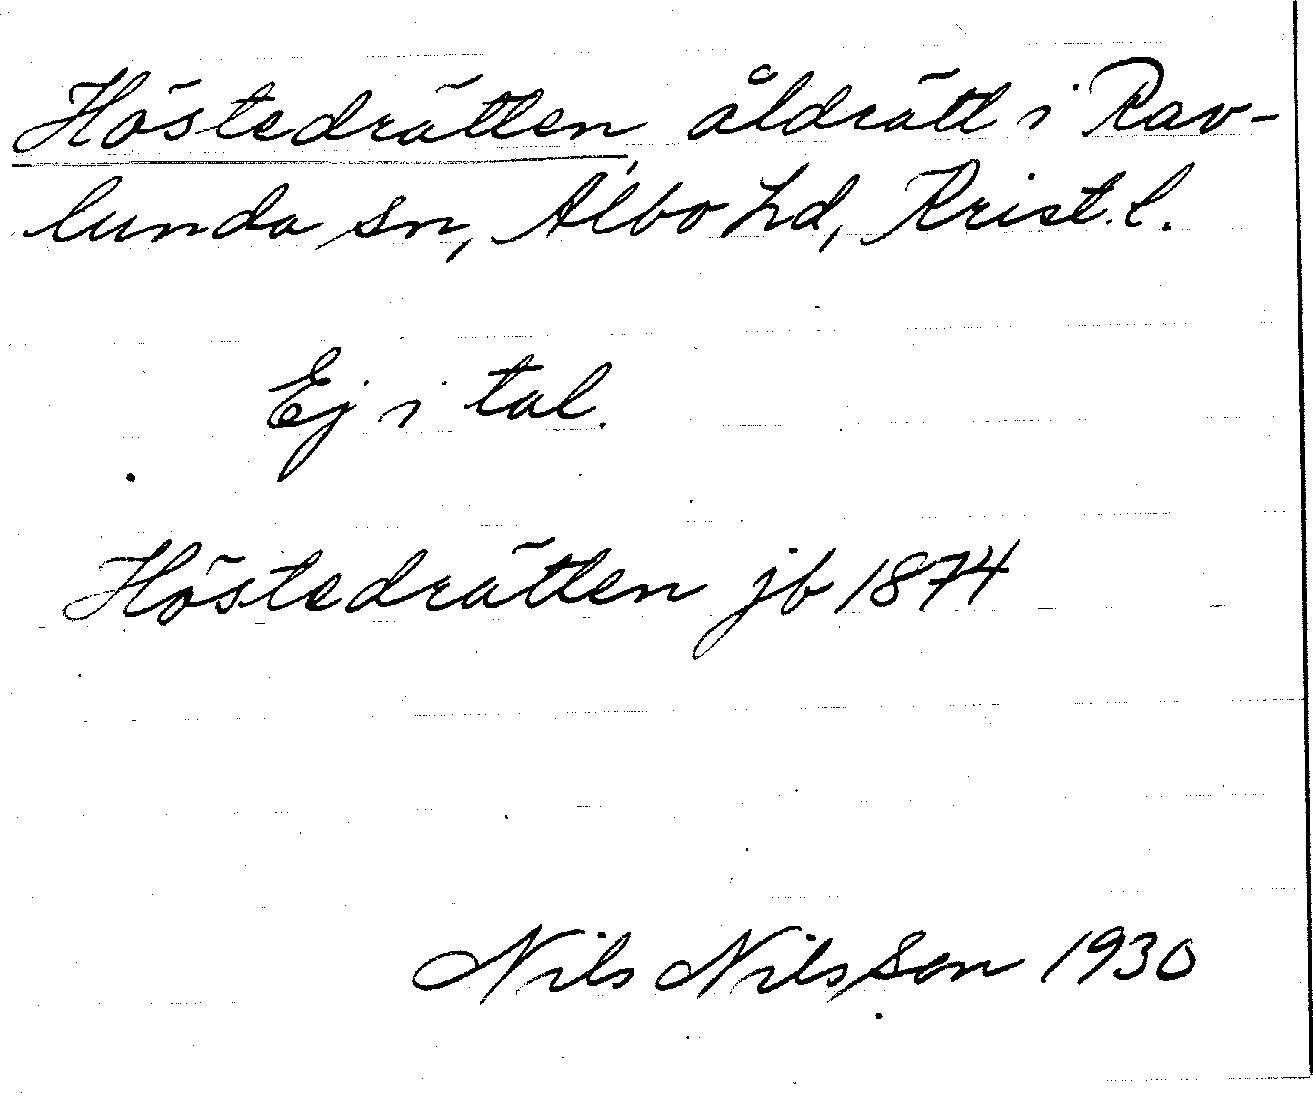 Höstedrätten, åldrätt i Rav-
lunda sn, Albo hd, Krist. l.
Ej i tal.
Höstedrätten jb 1874
Nils Nilsson 1930